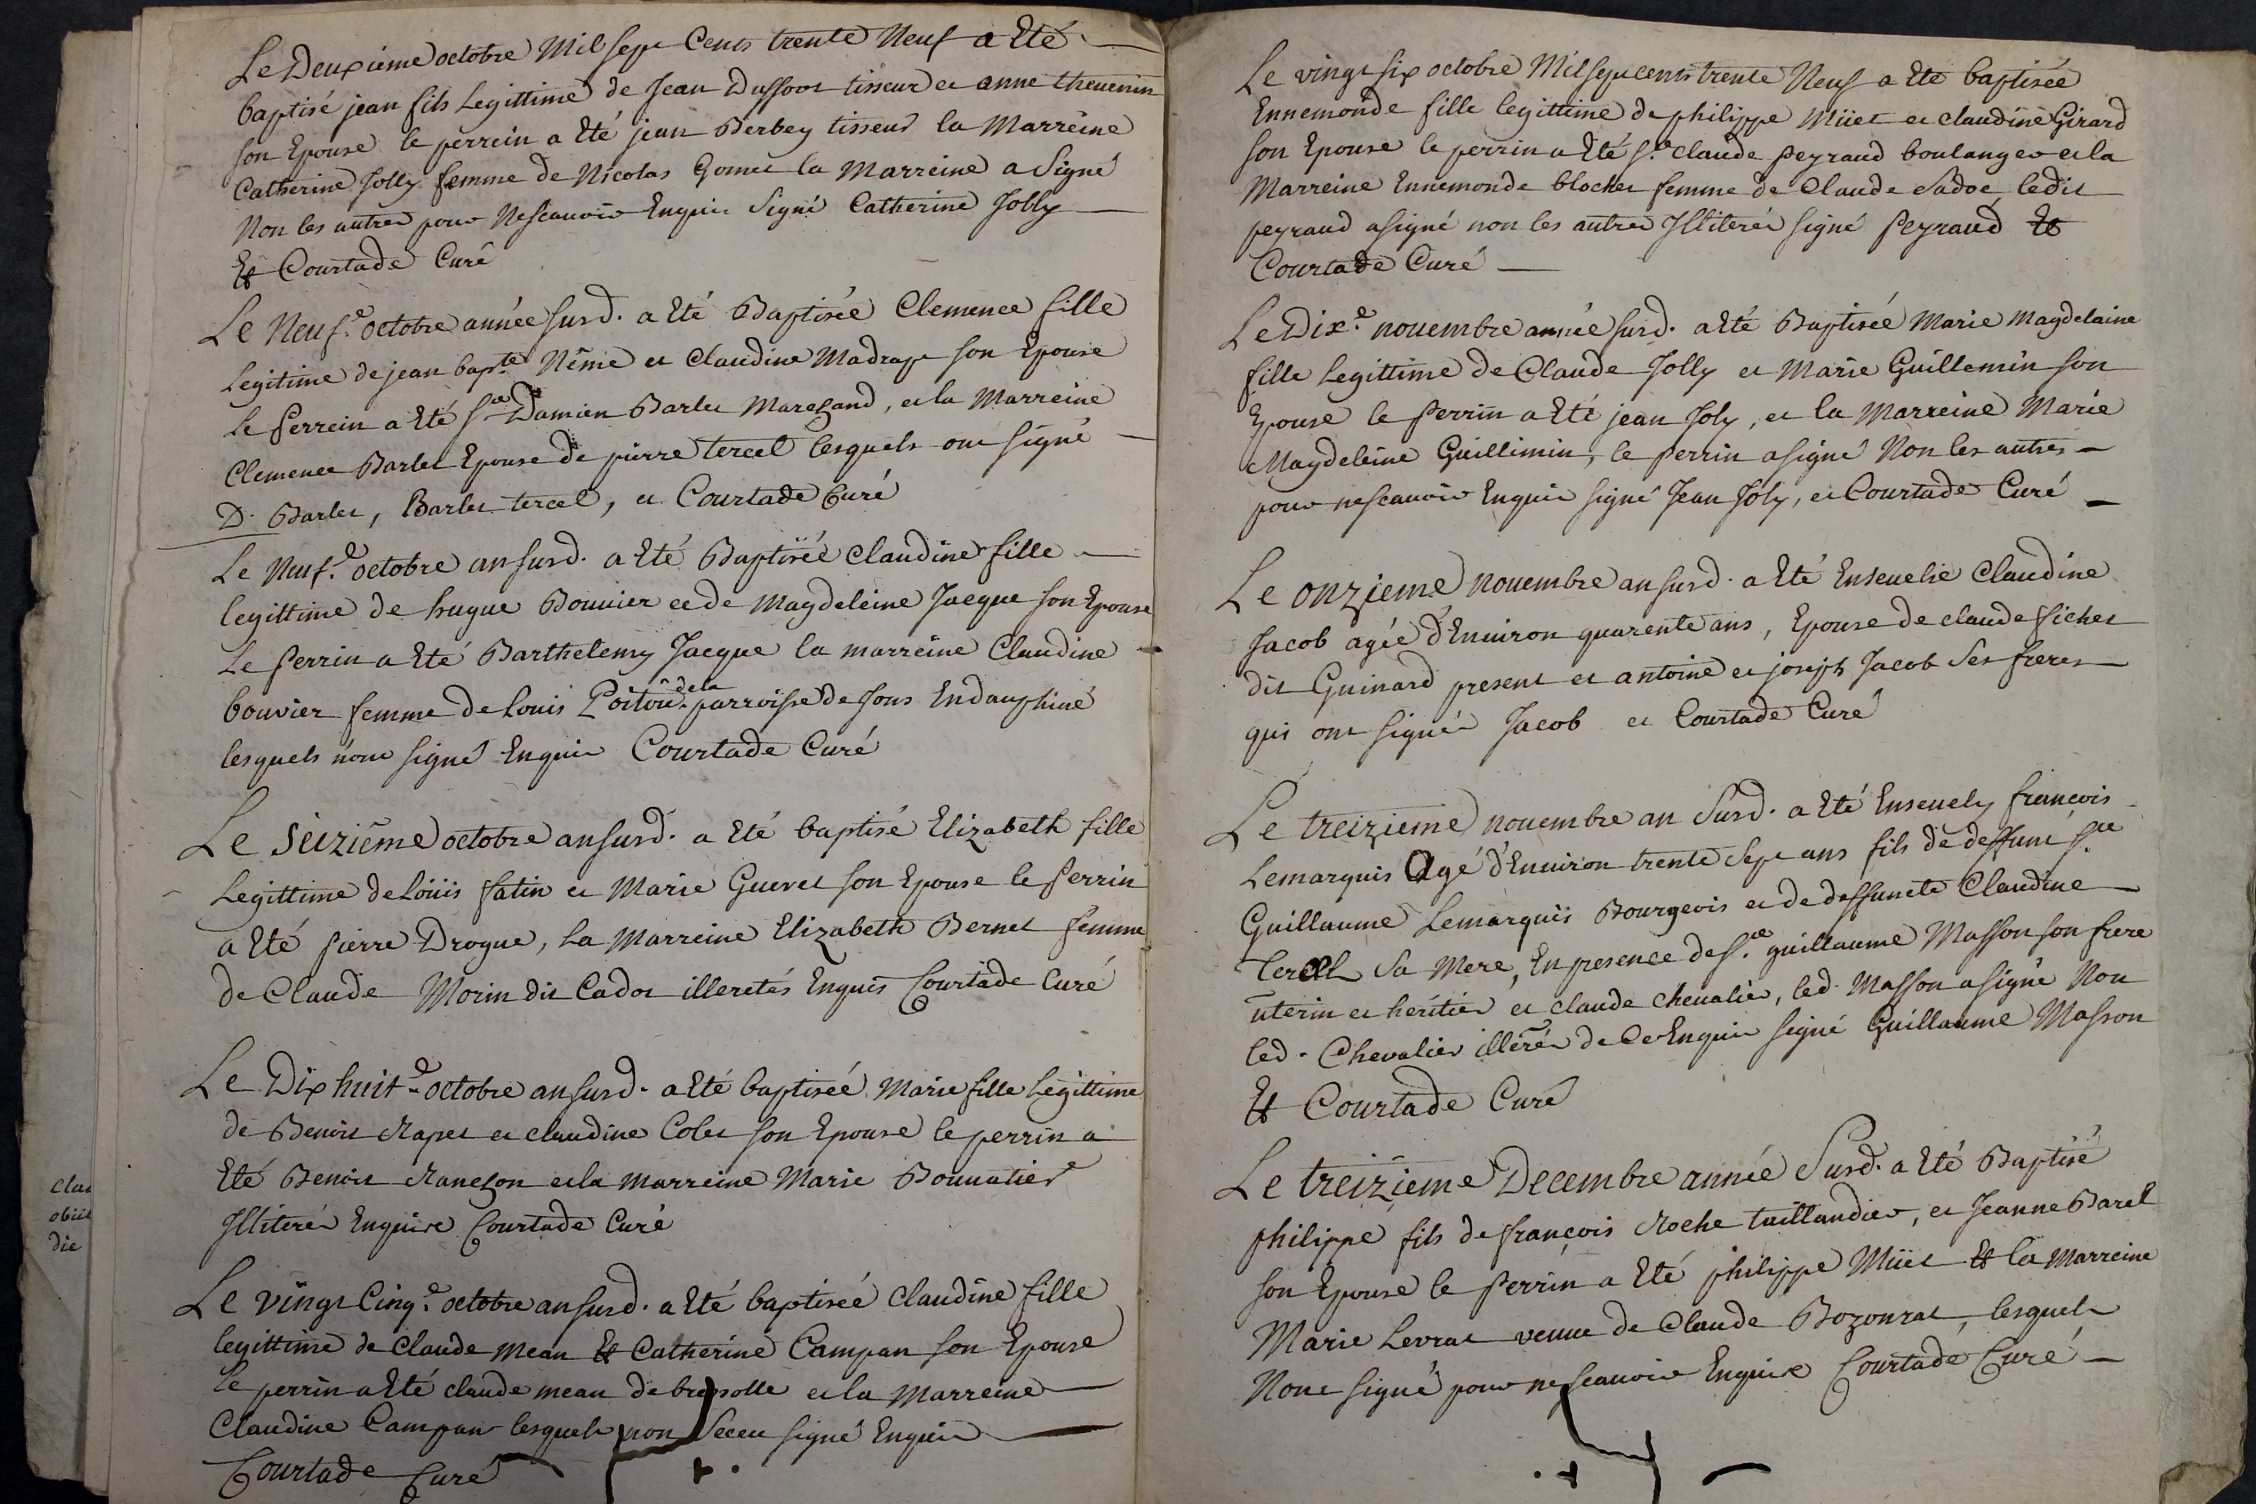 Le Deuxieme octobre Mil sept Cents trente Neuf a Eté
baptisé jean fils Legittime de Jean Duffour tisseur et anne thevenin
son Epouse le perrein a Eté jean Berbey tisseur la Marreine
Catherine Jolly femme de Nicolas Gomet la Marreine a Signé
Non les autres pour Nescauoir Enquis Signé Catherine Jolly
Et Courtade Curé
Le Neuf.e octobre année susd. a Eté Baptisée Clemence fille
Legitime de jean bapte Nême et Claudine Madraz son Epouse
le Perrein a Eté Sr Damien Barlet Marchand, et la Marreine
Clemence Barlet Epouse de pierre tercel lesquels ont signé
D. Barlet, Barlet tercel, et Courtade Curé
Le Neuf.e octobre an susd. a Eté Baptisée Claudine fille
legittime de hugue Bouvier et de Magdeleine Jacque son Epouse
Le Perrin a Eté Barthelemy Jacque la marreine Claudine
bouvier femme de Louis Poitou de la parroisse de Jons Endauphiné
lesquels n'ont signé Enquis Courtade Curé
Le Seizième octobre an susd. a Eté baptisé Elizabeth fille
Legittime de Loüis fatin et Marie Guevet son Epouse le Perrin
a Eté Pierre Drogue, La Marreine Elizabeth Bernet femme
de Claude Morin dit Cadot illeretés Enquis Courtade Curé
Le Dix huit.e octobre an susd. a Eté baptisée Marie fille Legittime
de Benoit Rapet et claudine Colet son Epouse le perrin a
Eté Benoit Ranchon et la marreine Marie Bonnatier
Illiterés Enquise Courtade Curé
Le vingt Cinq.e octobre an susd. a Eté baptisée Claudine fille
legittime de Claude Mean Et Catherine Campan son Epouse
le perrin a Eté claude mean de bressolle et la Marreine
Claudine Campan lesquels non Sceu signé Enquis
Courtade Curé
Le vingt six octobre Mil sept cents trente Neuf a Eté baptisée
Ennemonde fille legittime de philippe Müet et claudine Girard
son Epouse le perrin a Eté Sr. Claude Peyraud boulanger et la
Marreine Ennemonde blochet femme de Claude Sadoc, ledit
peyraud a signé non les autres Illiterés signé Peyraud Et
Courtade Curé
Le Dix.e nouembre année susd. a Eté Baptisée Marie Magdelaine
fille Legittime de Claude Jolly et Marie Guillemin son
Epouse le Perrin a Eté jean Joly, et la Marreine Marie
Magdeleine Guillimin, le perrin a signé Non les autres
pour nescauoir Enquis signé Jean Joly, et Courtade Curé
Le onzieme nouembre an susd. a Eté Enseuelie Claudine
Jacob agée d'Enuiron quarente ans, Epouse de claude fichet
dit Guinard present et antoine et joseph Jacob Ses freres
qui ont signés Jacob et Courtade Curé
Le treizieme nouembre an Susd. a Eté Enseuely françois
Lemarquis Agé d'Enuiron trente Sept ans fils de deffunt Sr.
Guillaume Lemarquis Bourgeois et de deffuncte Claudine
Tercel Sa Mere, En presence de Sr. guillaume Masson son frere
uterin et heritier et claude chevalier, led. Masson a signé Non
led. Chevalier illerés de Ce Enquis signé Guillaume Masson
Et Courtade Curé
Le treizieme Decembre année Susd. a Eté Baptisé
philippe fils de françois Roche taillandier, et Jeanne Barel
son Epouse le Perrin a Eté philippe Müet Et la Marreine
Marie Levrat veuue de Claude Bozonrat, lesquels
Nont signé pour nescauoir Enquise Courtade Curé